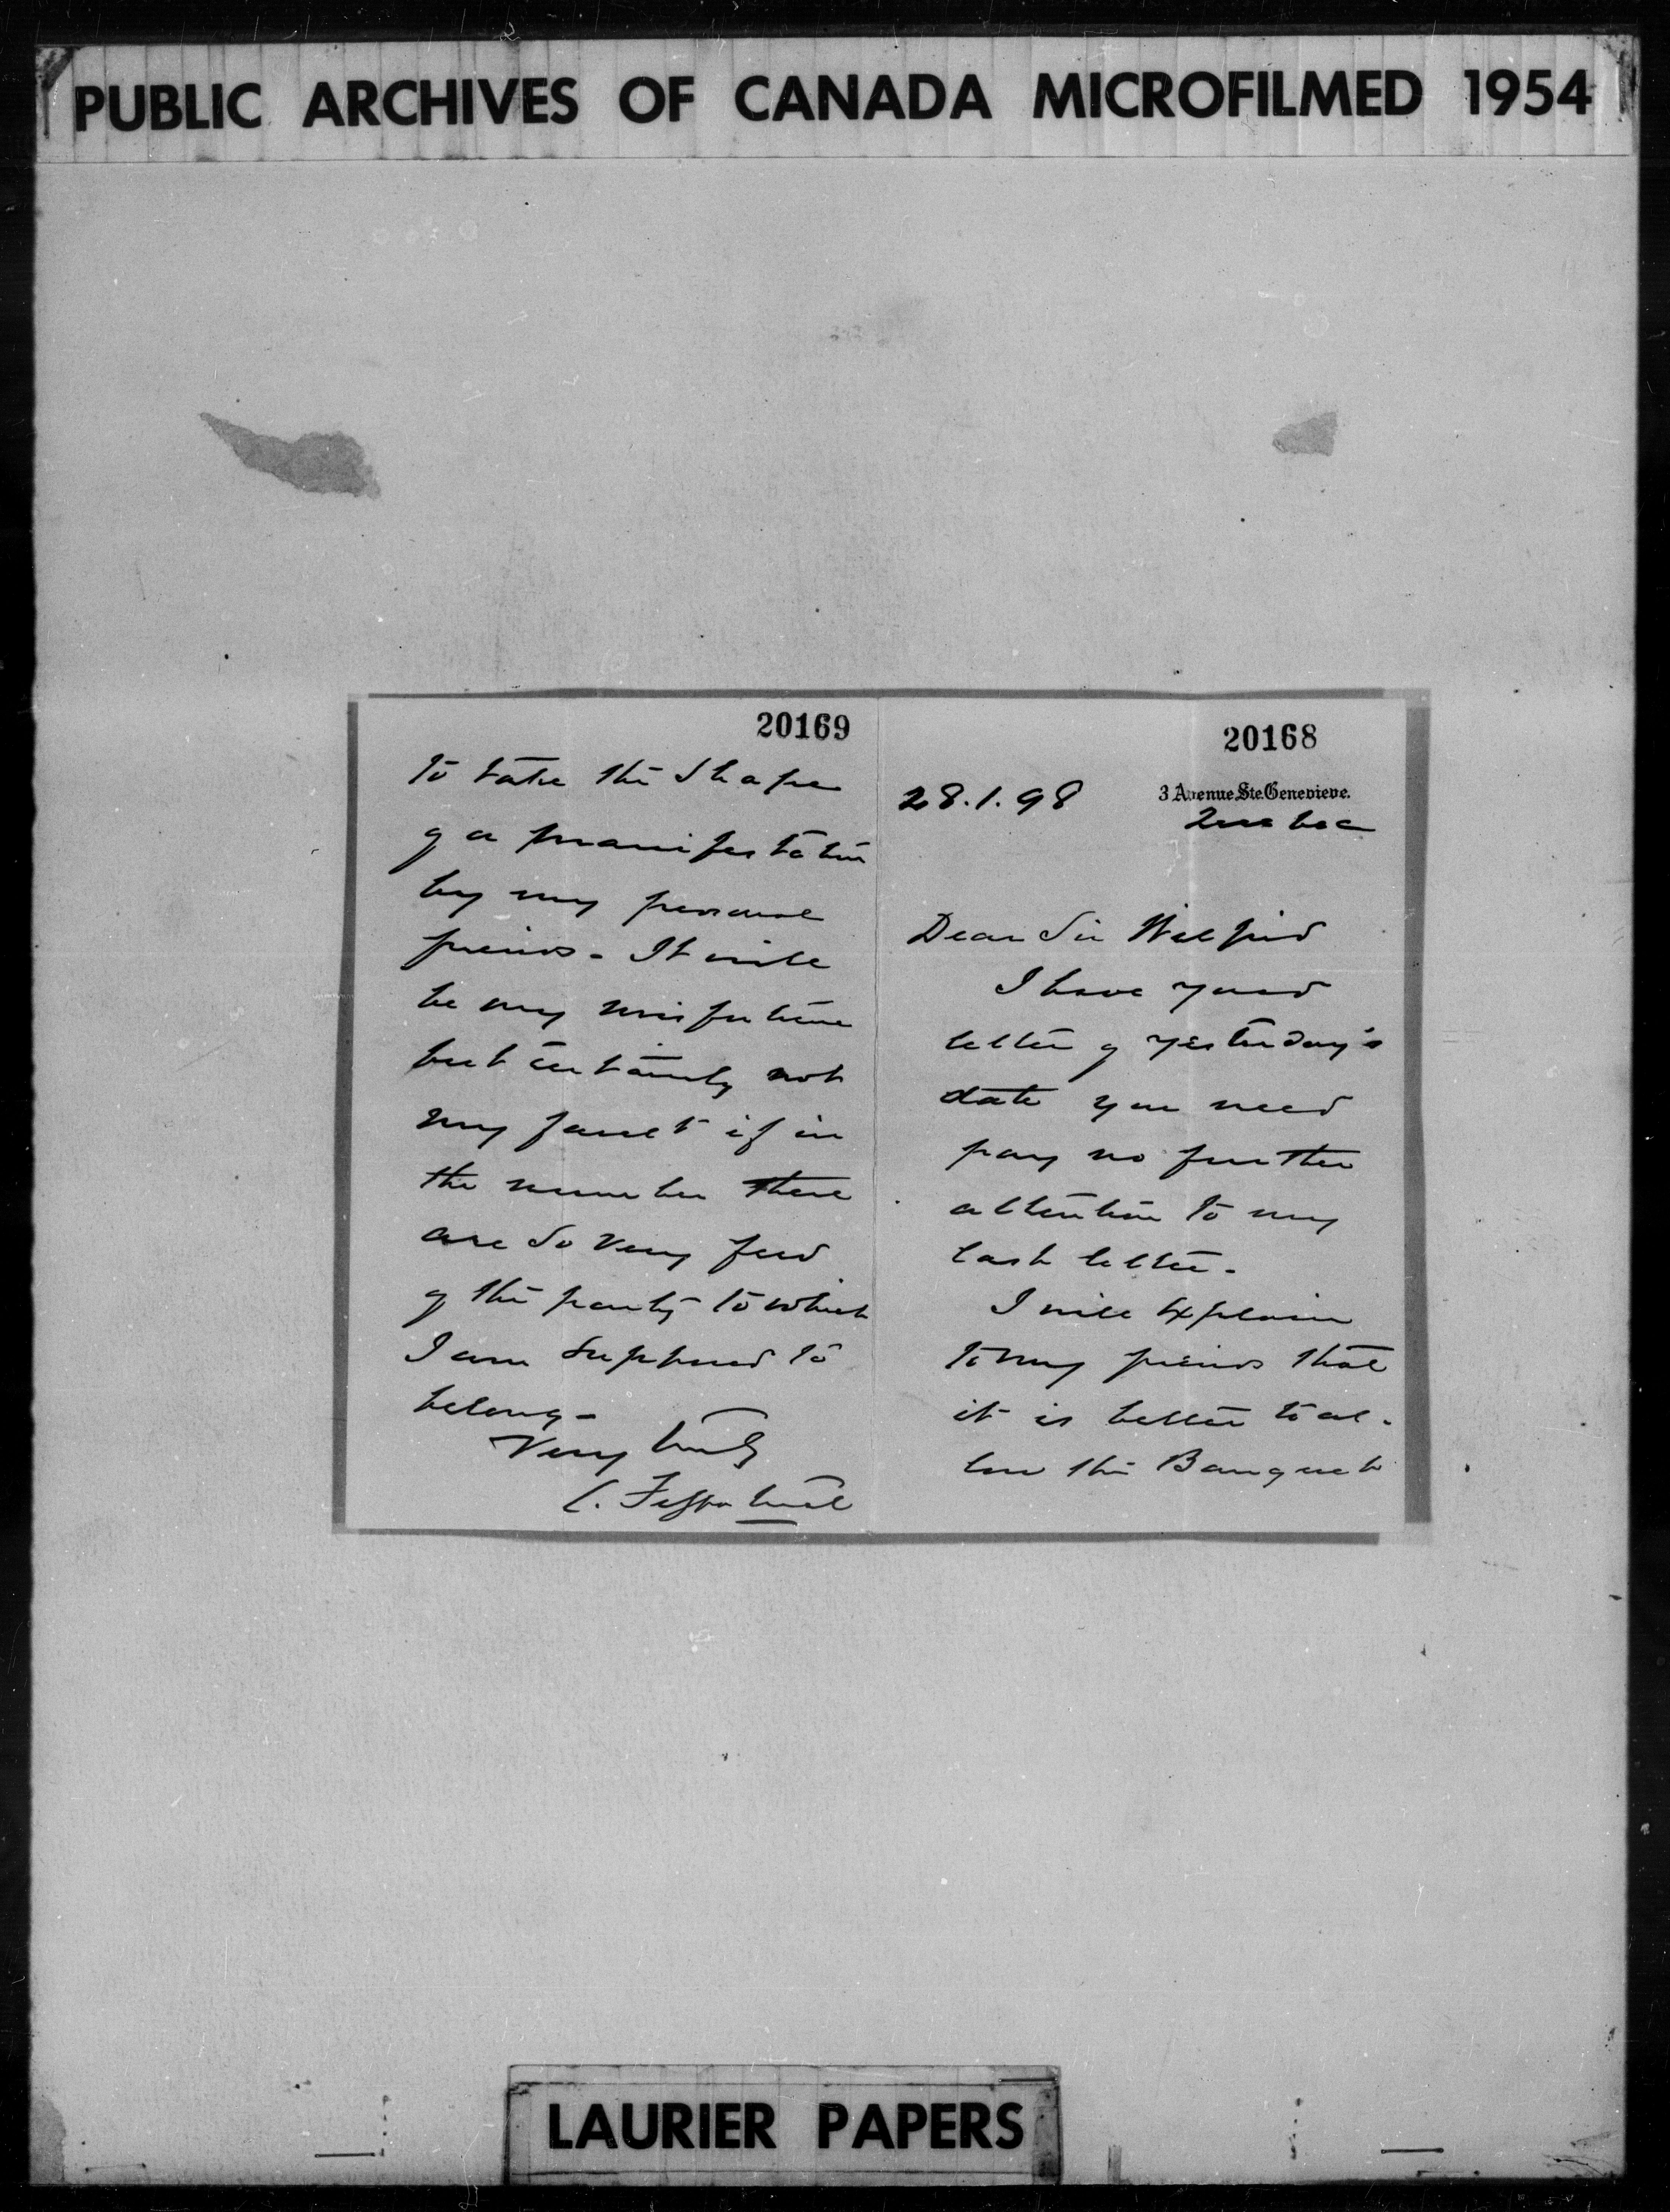 PUBLIC ARCHIVES OF CANADA MICROFILMED 1954
20168
28.1.98
3 Avenue Ste. Genevieve.
Quebec
Dear Sir Wilfrid
I have your
letter of yesterday's
date you need
pay no further
attention to my
last letter.
I will explain
to my friends that
it is better to al-
low the Banquet
20169
to take the shape
of a manifestation
by my personal
friends - It will
be my misfortune
but certainly not
my fault if in
the number there
are so very few
of the party to which
I am supposed to
belong -
Very truly
C. Fitzpatrick
LAURIER PAPERS